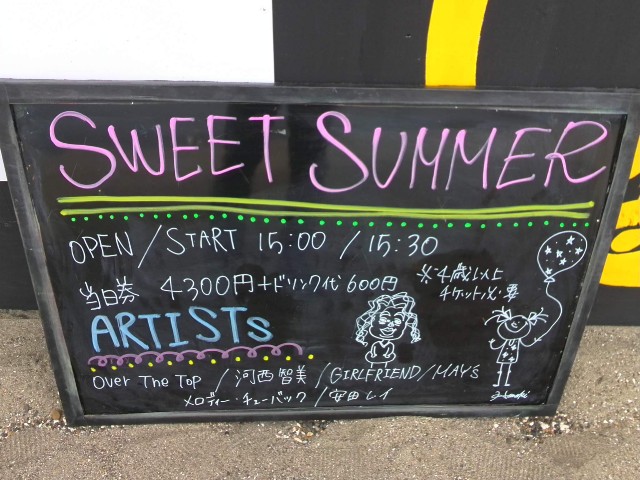 SWEET SUMMER
OPEN / START 15:00 / 15:30
当日券 4300円+ドリンク代600円 ※4歳以上
チケット必要
ARTISTs
Over The Top / 河西智美 / GIRLFRIEND / MAY's
メロディー・チューバック / 安田レイ